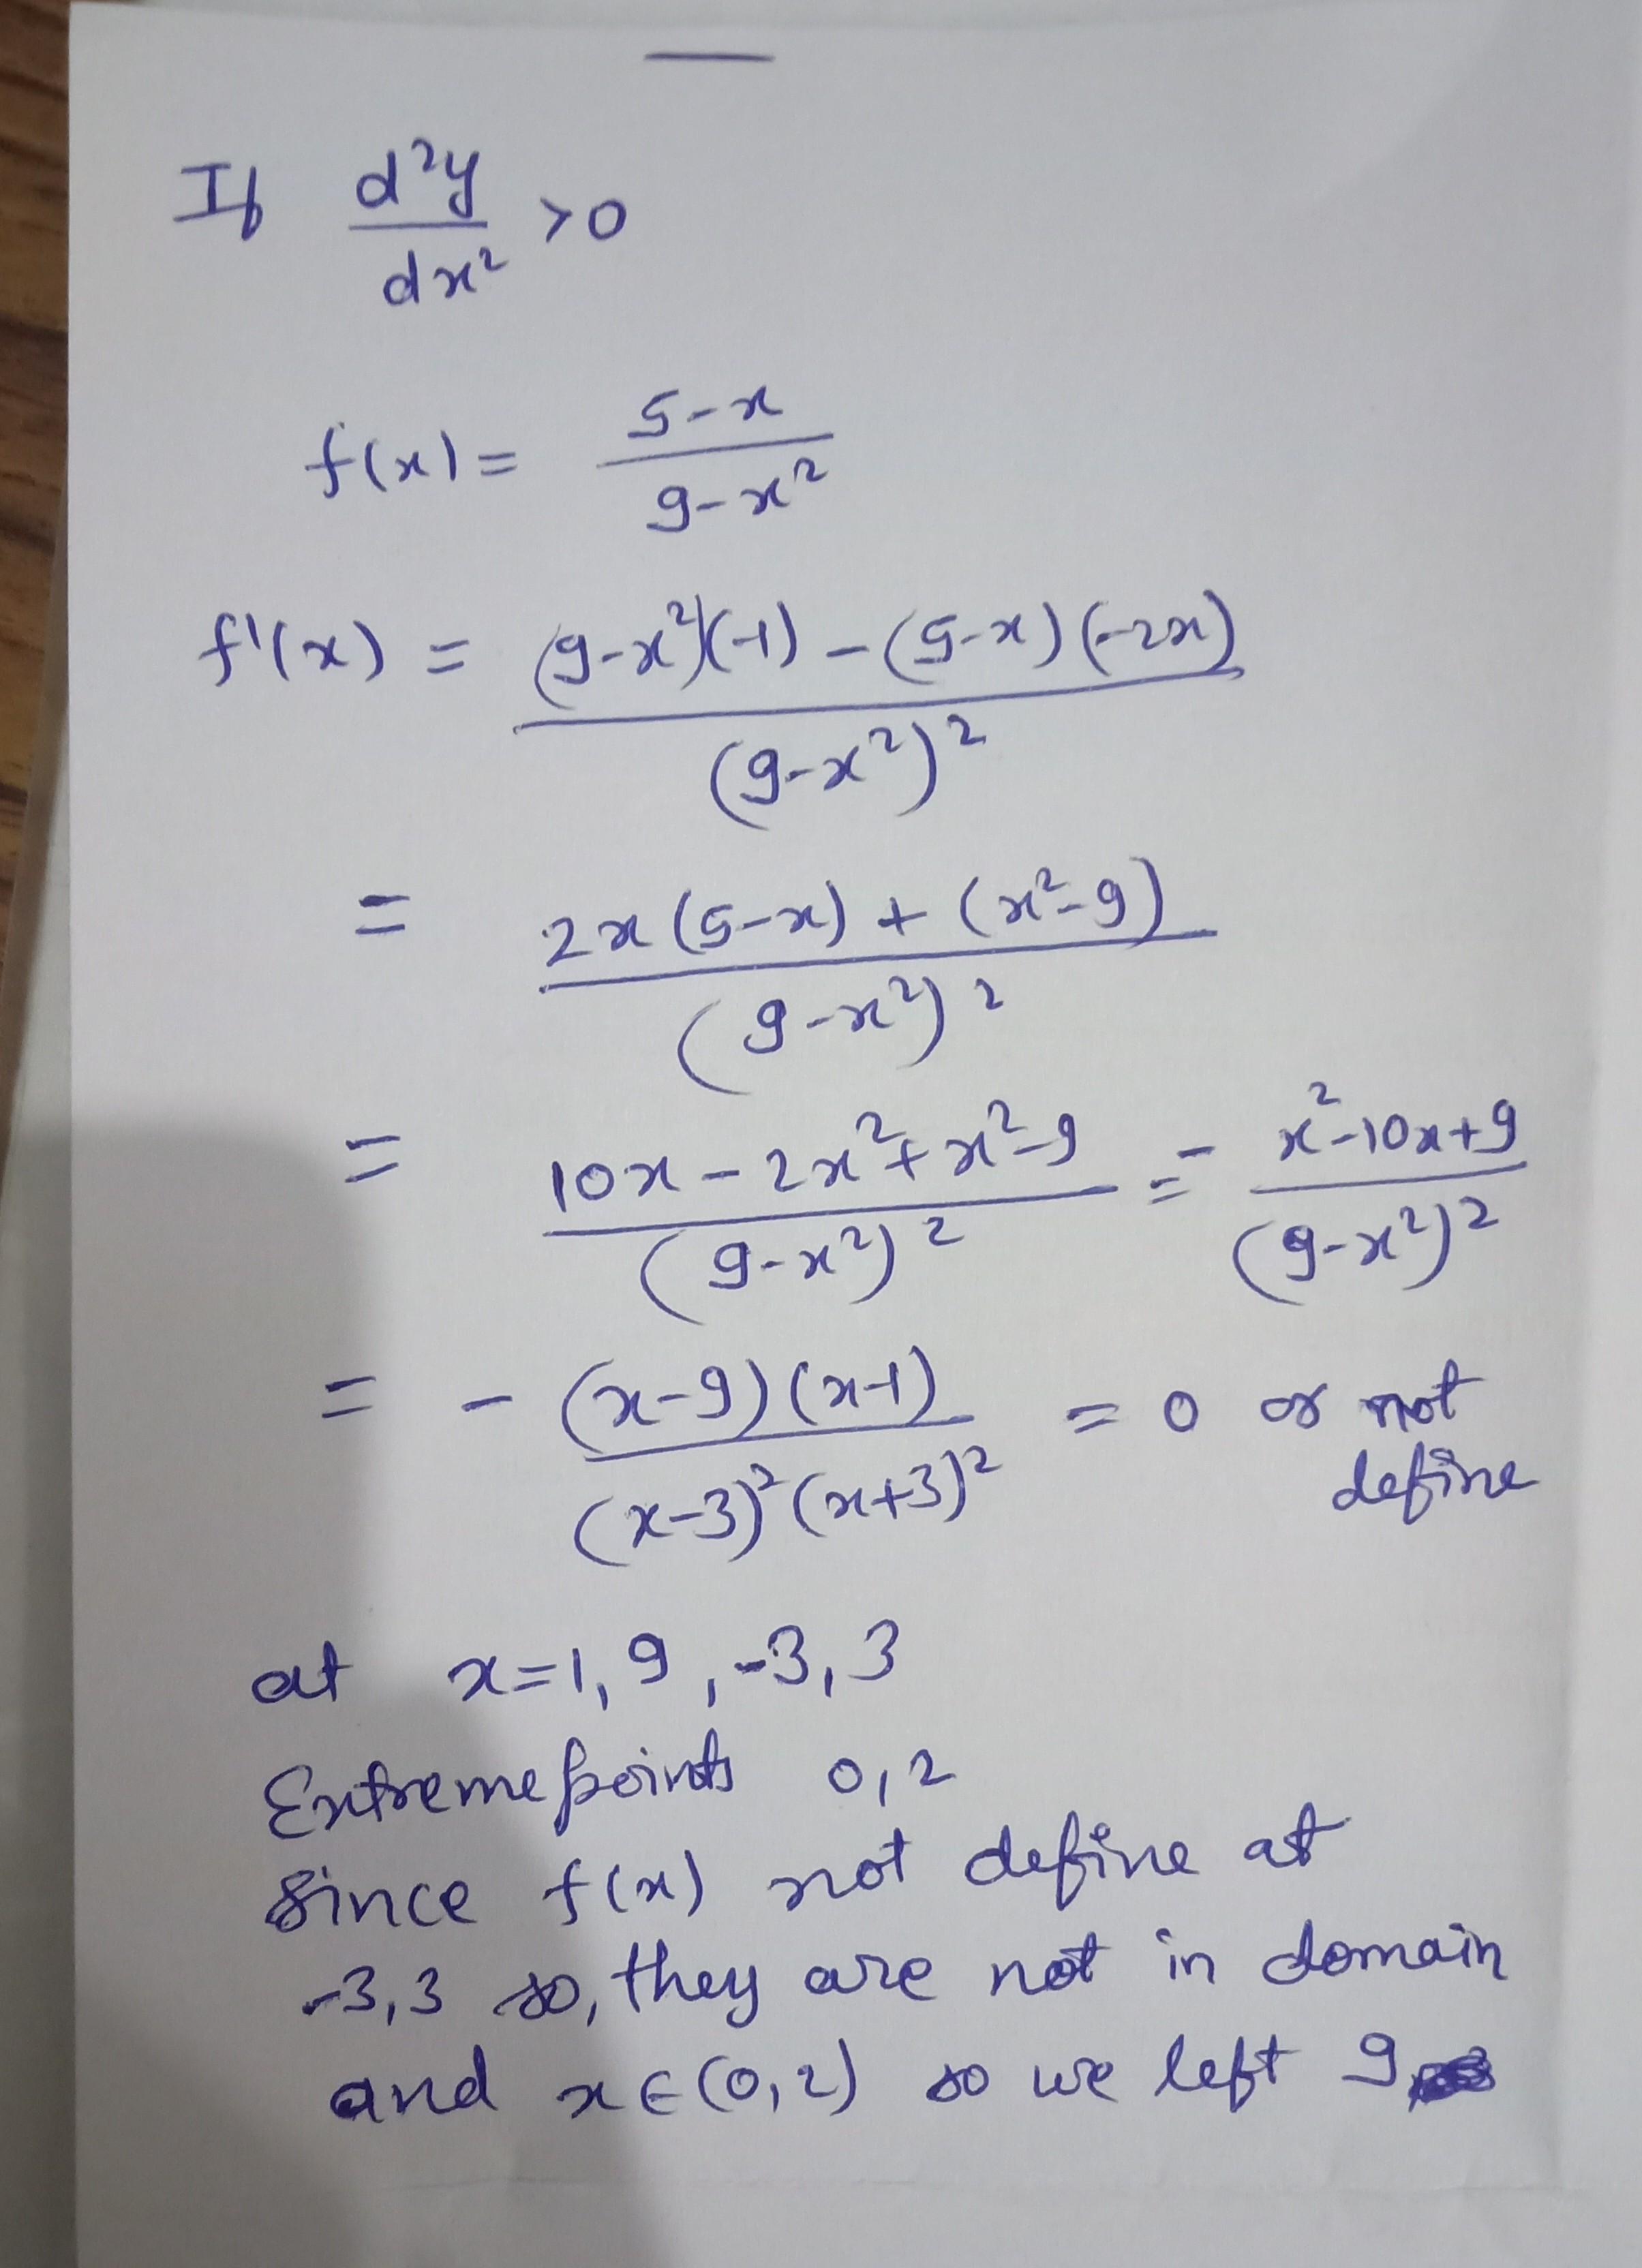 If d²y/dx² >0
f(x) = (5-x)/(9-x²)
f'(x) = ((9-x²)(-1) - (5-x)(-2x))/(9-x²)²
= (2x(5-x) + (x²-9))/(9-x²)²
= (10x - 2x² + x² - 9)/(9-x²)² = - (x²-10x+9)/(9-x²)²
= - ((x-9)(x-1))/((x-3)²(x+3)²) = 0 or not
define
at x=1, 9, -3, 3
Extreme points 0,2
since f(x) not define at
-3,3 so, they are not in domain
and x∈(0,2) so we left 9